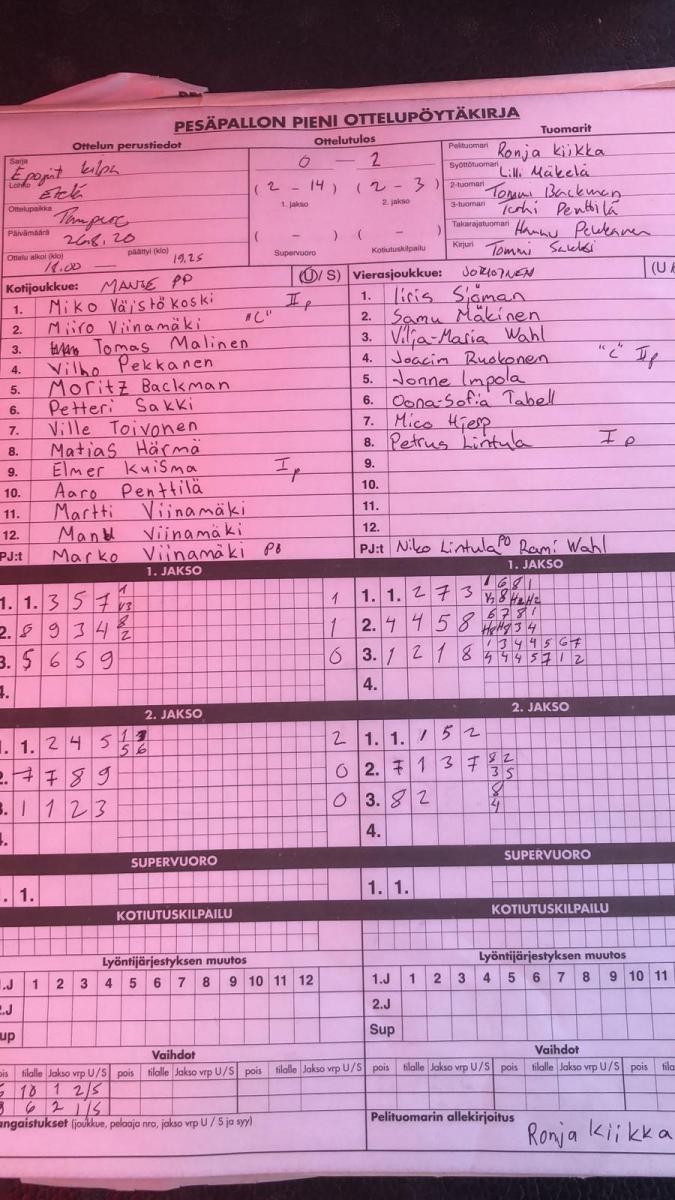 PESÄPALLON PIENI OTTELUPÖYTÄKIRJA
Ottelun perustiedot
Sarja
Epojat kilpa
Lohko
Etelä
Ottelupaikka
Tampere
Päivämäärä
26.8.20
Ottelu alkoi (klo) päättyi (klo)
18.00 — 19.25
Ottelutulos
0 — 2
( 2 – 14 ) ( 2 – 3 )
1. jakso 2. jakso
( – ) ( – )
Supervuoro Kotiutuskilpailu
Tuomarit
Pelituomari Ronja Kiikka
Syöttötuomari Lilli Mäkelä
2-tuomari Tommi Backman
3-tuomari Terhi Penttilä
Takarajatuomari Hannu Pekkanen
Kirjuri Tommi Sakki
Kotijoukkue: MANSE PP (U/ S)
1. Miko Väistökoski II p
2. Miiro Viinamäki "C"
3. Tomas Malinen
4. Vilho Pekkanen
5. Moritz Backman
6. Petteri Sakki
7. Ville Toivonen
8. Matias Härmä
9. Elmer Kuisma I p
10. Aaro Penttilä
11. Martti Viinamäki
12. Manu Viinamäki
PJ:t Marko Viinamäki PO
Vierasjoukkue: JOKIOINEN (U
1. Iiris Sjöman
2. Samu Mäkinen
3. Vilja-Maria Wahl
4. Joacim Ruokonen "C" II p
5. Jonne Impola
6. Oona-Sofia Tabell
7. Mico Hjerp
8. Petrus Lintula I p
9.
10.
11.
12.
PJ:t Niko Lintula PO Rami Wahl
1. JAKSO
1. 1. 3 5 7 1 1
V3
2. 8 9 3 4 8 1
2
3. 5 6 5 9 0
4.
1. JAKSO
1. 1. 2 7 3 1 6 8 1
8 H2 H2
2. 4 4 5 8 6 7 8 1
3 4
3. 1 2 1 8 1 3 4 4 5 6 7
4 4 4 5 7 1 2
4.
2. JAKSO
1. 1. 2 4 5 1 2
5 6
2. 7 7 8 9 0
3. 1 1 2 3 0
4.
2. JAKSO
1. 1. 1 5 2
2. 7 1 3 7 8 2
3 5
3. 8 2 8
4
4.
SUPERVUORO
1. 1.
SUPERVUORO
1. 1.
KOTIUTUSKILPAILU
KOTIUTUSKILPAILU
Lyöntijärjestyksen muutos
1.J 1 2 3 4 5 6 7 8 9 10 11 12
2.J
Sup
Lyöntijärjestyksen muutos
1.J 1 2 3 4 5 6 7 8 9 10 11
2.J
Sup
Vaihdot
pois tilalle Jakso vrp U/S pois tilalle Jakso vrp U/S pois tilalle Jakso vrp U/S
10 1 2/S
6 2 1/S
Vaihdot
pois tilalle Jakso vrp U/S pois tilalle Jakso vrp U/S pois
angaistukset (joukkue, pelaaja nro, jakso vrp U / S ja syy)
Pelituomarin allekirjoitus
Ronja Kiikka